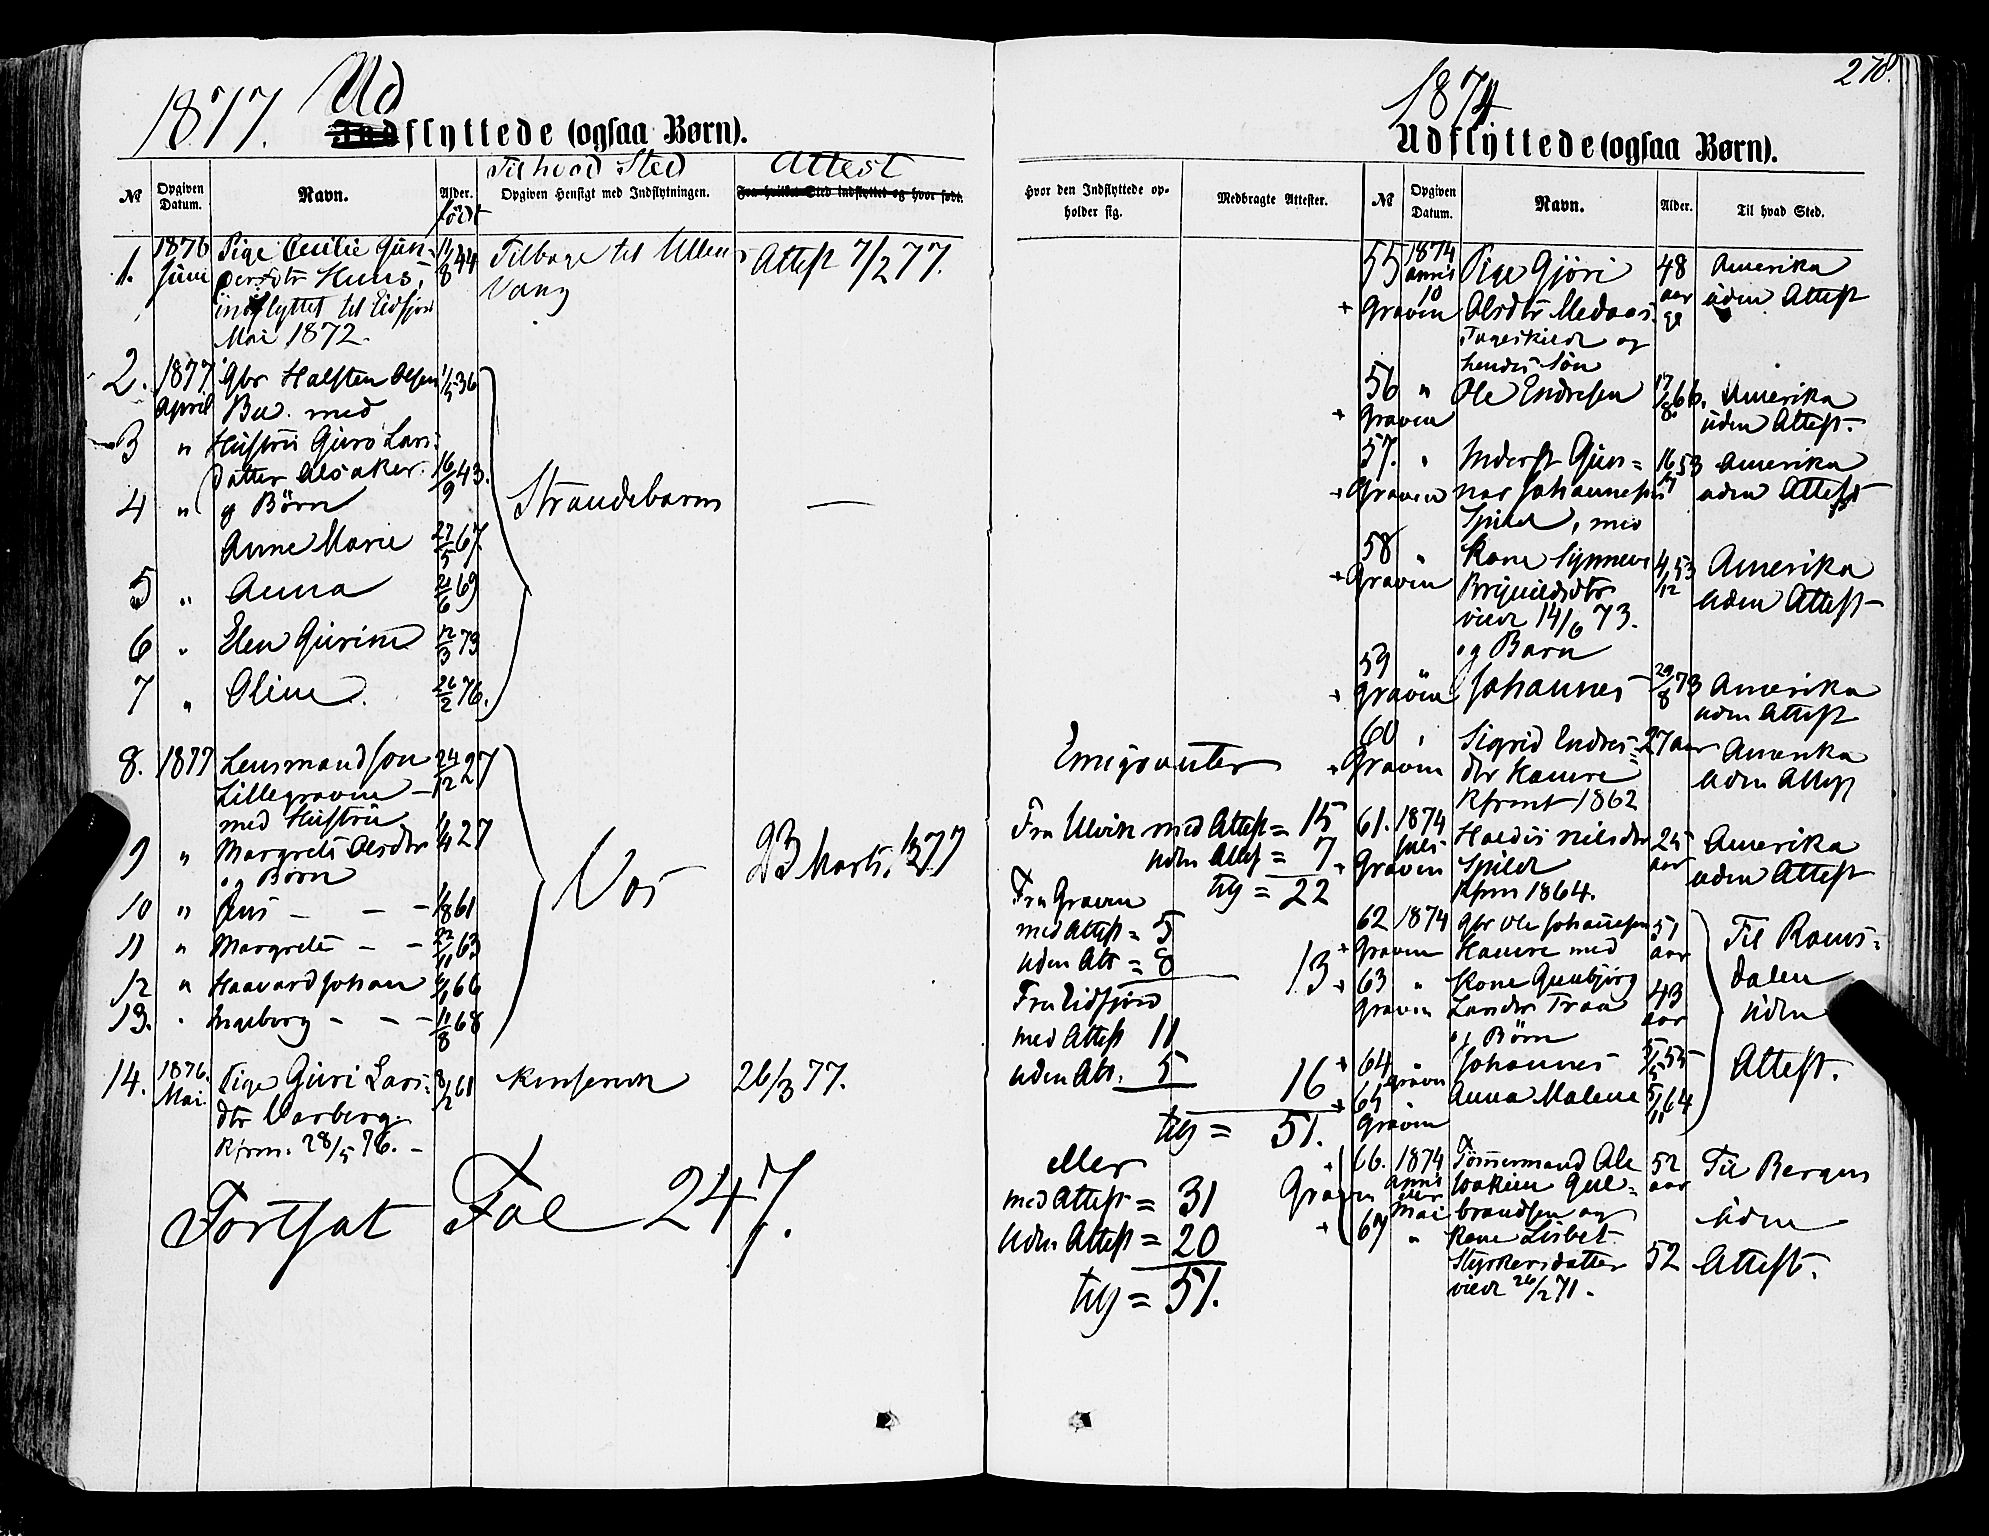 1877. Ud
Indflyttede (ogsaa Børn).
Til hvad Sted
Attest
№
Opgiven Datum.
Navn.
Alder.
født
Opgiven Hensigt med Indflytningen.
Fra hvilket Sted indflyttet og hvor født.
1. 1876 Pige Cecilie Gun- 11/8 44 Tilbage til Ullens- Attest 7/2 77.
Juni dersdtr Huus, vang
indflyttet til Eidfjord
Mai 1872.
2. 1877 Gbr Halsten Olsen 1/5 36
April Bu. med
3 " Hustru Guro Lars-
datter Alsaker. 16/9 43.
4 " og Børn Strandebarm —
Anne Marie 27/5 67.
5 " Anna 2/6 69
6 " Elen Gurine 12/3 73
7 " Oline. 26/2 76.
8. 1877 Lensmand Jon 24/12 27
Lillegraven
med Hustru
9 " Margrete Olsdtr 1/4 27
og Børn Vos 23 Marts. 1877
10 " Jens — — — 1/8 61
11 " Margrete — — 22/11 63
12 " Haavard Johan 66
13. " Ingeborg — — — 11/8 68
14. 1876. Pige Guri Lars- 8/2 61 Kinservik 26/3 77.
Mai. dtr Varberg.
Kfrm. 28/5 76. —
Fortsat Fol 247.
278.
1874
Udflyttede (ogsaa Børn).
Hvor den Indflyttede op-
holder sig.
Medbragte Attester.
№
Opgiven Datum.
Navn.
Alder.
Til hvad Sted.
55 1874 Pige Gjøri 48 Amerika
April 10 aar uden Attest
+ Graven Olsdtr Medaas
og
hendes Søn
56 " Ole Endresen 17/8 66. Amerika
+ Graven uden Attest.
57. " Inderst Gun= 16 53 Amerika
+ Graven nar Johannesen uden Attest
Spilde, med
58 " Kone Synneve 4/12 53 Amerika
+ Graven Brynildsdtr uden Attest
viede 14/6 73.
og Barn
59 "
+ Graven Johannes 29/8 73 Amerika
uden Attest
60 " Sigrid Endres= 27 aar Amerika
+ Graven dtr Haure uden Attest
Kfrmt 1862
61. 1874 Haldis Nilsdtr 25 Amerika
Juli Spilde aar uden Attest
+ Graven Kfrm 1864.
62 1874 Gbr Ole Johannesen 51 Til Roms=
+ Graven Haure med aar dalen
63 " Kone Gunbjørg 43 uden
+ Graven Larsdtr Traa aar Attest.
og Børn
64 " Johannes 5/5 55
+ Graven
65 Anna Malene 5/11 64
+ Graven
66. 1874 Tømmermand Ole 52 Til Bergen
Graven April Joakim Gul= aar uden
eller Mai brandsen og
67 " Kone Lisbet Attest.
Styrkersdatter 52
viede 26/2 71.
Emigranter
Fra Ulvik med Attest = 15
uden Attest = 7
tils = 22
Fra Graven
med Attest = 5
uden Att = 8 13
Fra Eidfjord
med Attest 11
uden Att. 5 16
tils = 51.
eller
med Attest = 31
uden Attest = 20
tils = 51.